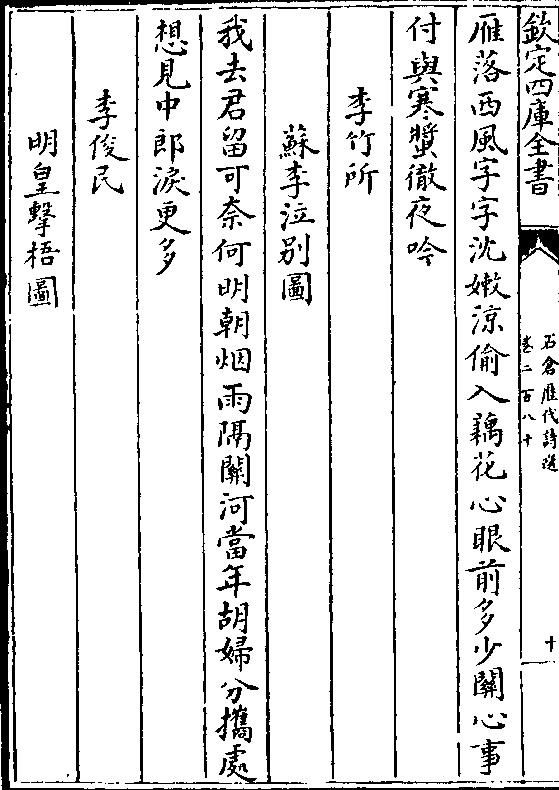 欽定四庫全書
石倉歷代詩選
卷二百八十
十
雁落西風字字沈嫩涼偷入藕花心眼前多少關心事
付與寒螿徹夜吟
李竹所
蘇李泣别圖
我去君留可奈何明朝烟雨隔關河當年胡婦分攜處
想見中郎淚更多
李俊民
明皇擊梧圖